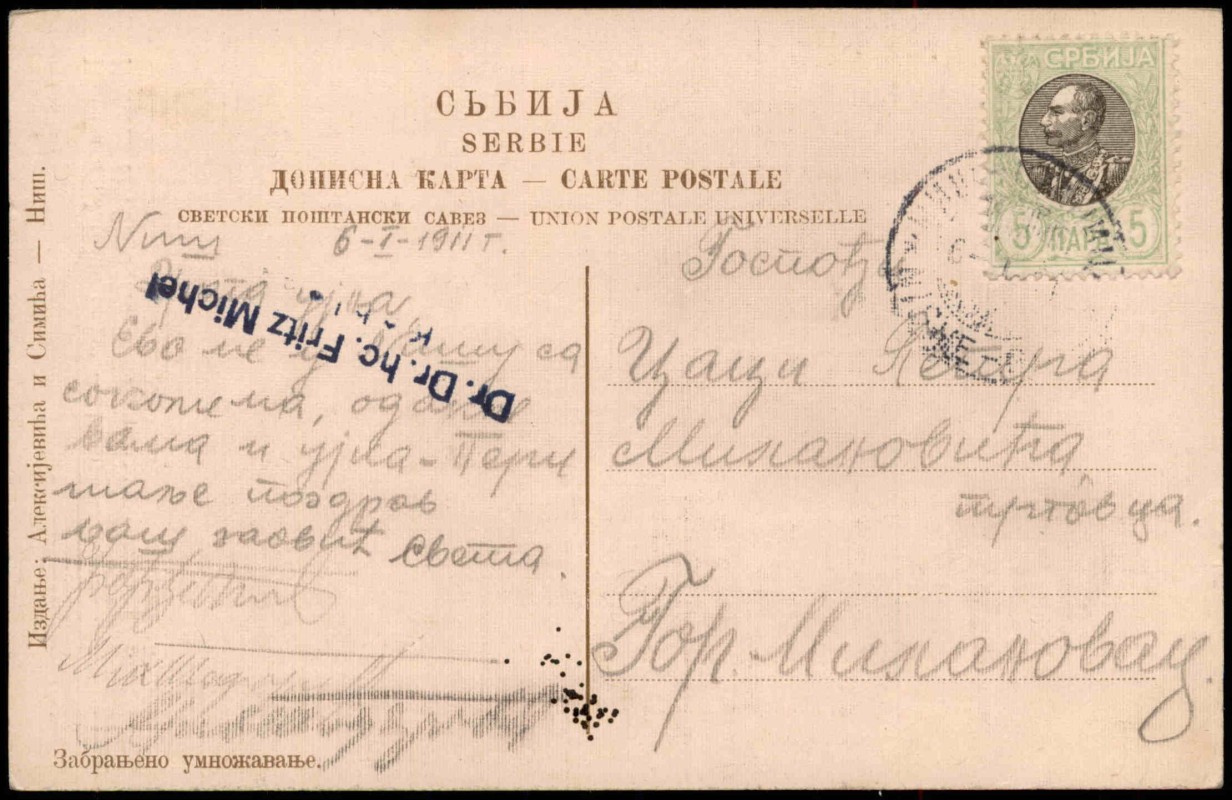 СЬБИЈА
SERBIE
ДОПИСНА КАРТА — CARTE POSTALE
СВЕТСКИ ПОШТАНСКИ САВЕЗ — UNION POSTALE UNIVERSELLE
СРБИЈА
5 ПАРА 5
Издање: Алексијевића и Симића — Ниш.
Ниш 6-I-1911 г.
ујна,
Dr. Dr. hc. Fritz Michel
Ево ме у Нишу са
соколима, одакле
вама и ујка-Пери
шаље поздрав
ваш заовић Света.
Госпођи
Цаци Петра
Милановића,
трговца.
Гор. Милановац.
Забрањено умножавање.